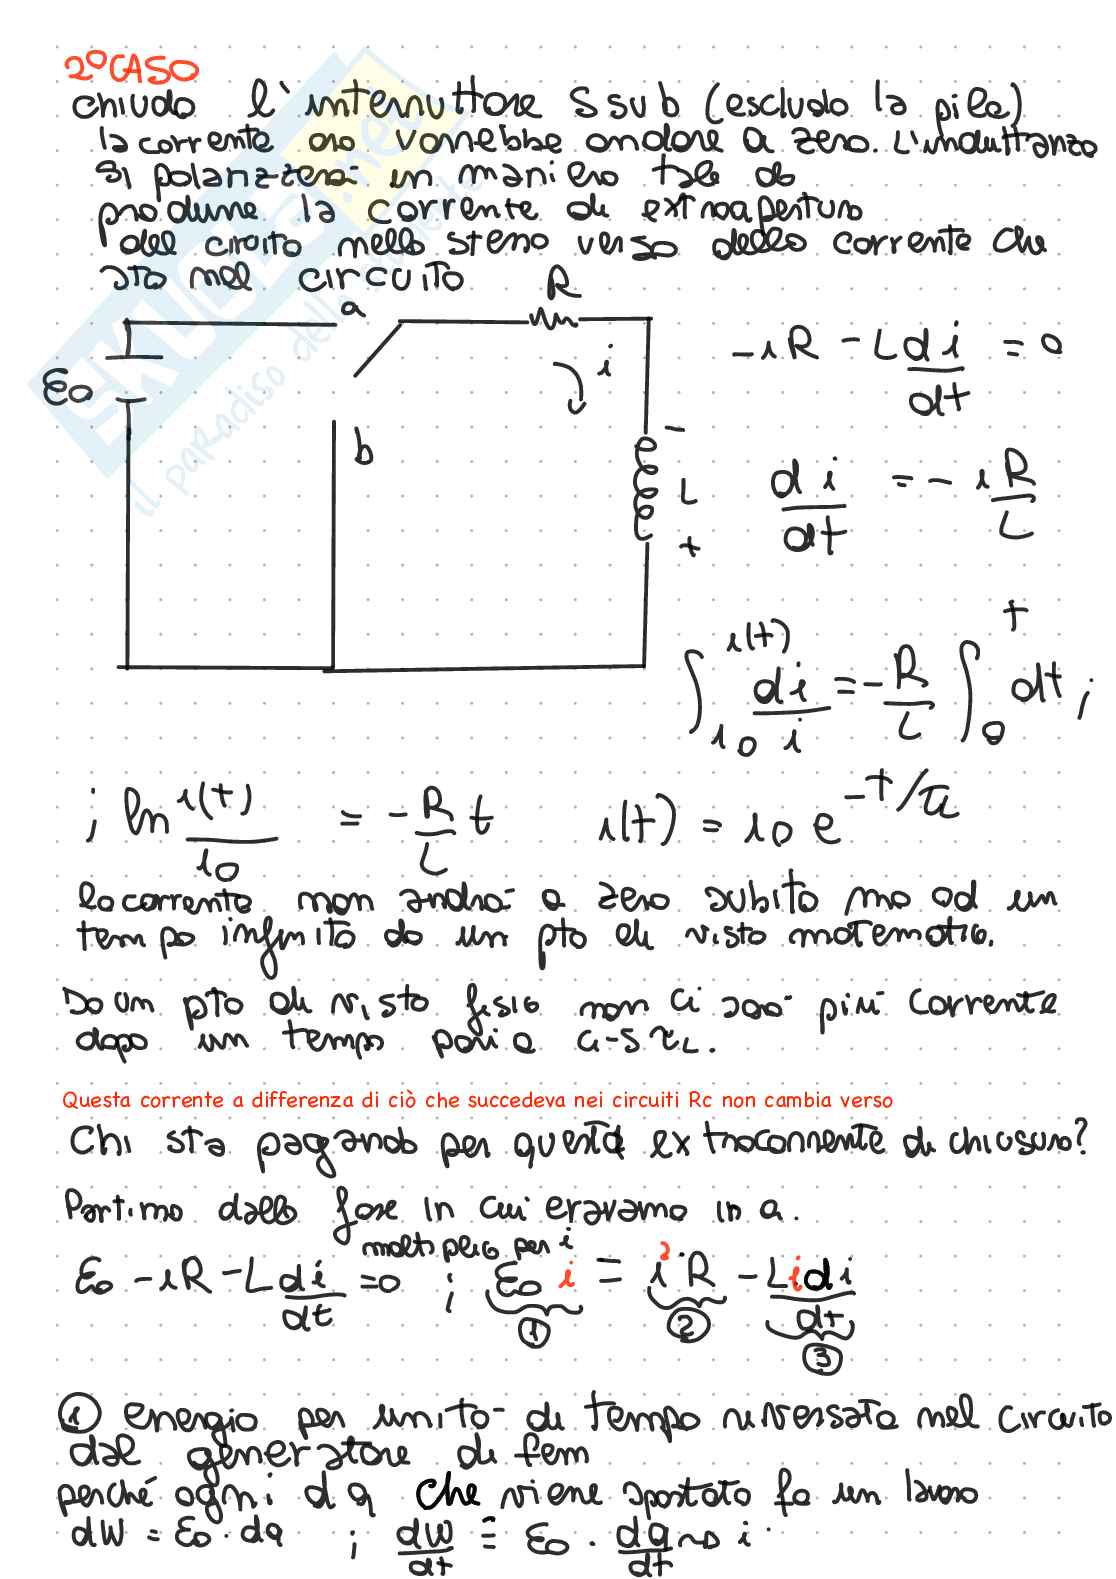 2° CASO
Chiudo l'interruttore S su b (escludo la pila)
la corrente ora vorrebbe andare a zero. L'induttanza
si polarizzerà in maniera tale da
produrre la corrente di extraapertura
del circuito nello stesso verso della corrente che
sta nel circuito
a
R
ε0
i
b
-
L
+
-iR - L di/dt = 0
di/dt = - i R/L
∫ i0 i(t) di/i = - R/L ∫ 0 t dt ;
; ln i(t)/i0 = - R/L t i(t) = i0 e -t/τL
la corrente non andrà a zero subito ma ad un
tempo infinito da un pto di vista matematico.
Da un pto di vista fisico non ci sarà più corrente
dopo un tempo pari a 4-5 τL.
Questa corrente a differenza di ciò che succedeva nei circuiti Rc non cambia verso
Chi sta pagando per questa extracorrente di chiusura?
Partiamo dalla fase in cui eravamo in a.
moltiplico per i
ε0 - iR - L di/dt = 0 ; ε0 i = i² R - L i di/dt
1 2 3
① energia per unità di tempo riversata nel circuito
dal generatore di fem
perché ogni dq che viene spostato fa un lavoro
dW = ε0 · dq ; dW/dt = ε0 · dq/dt → i
SKUOLA.net
il paradiso dello studente